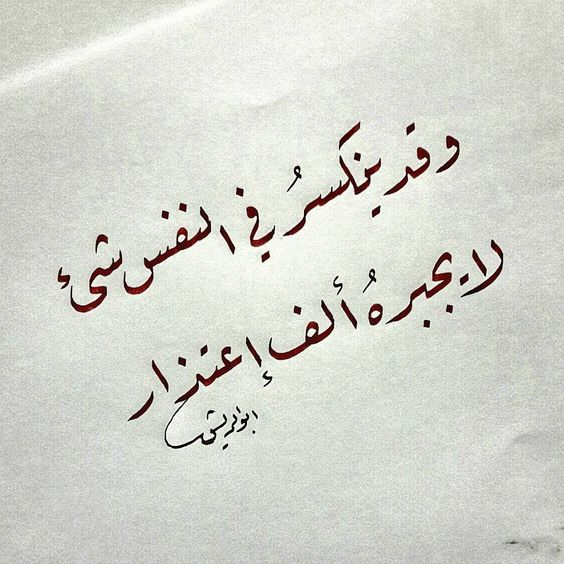 وقد ينكسرُ في النفس شئ
لا يجبرهُ ألف إعتذار
ابوالريش